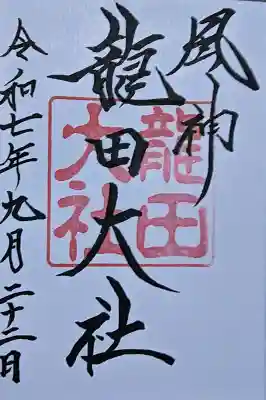 風神
龍田大社
龍田
大社
令和七年九月二十二日